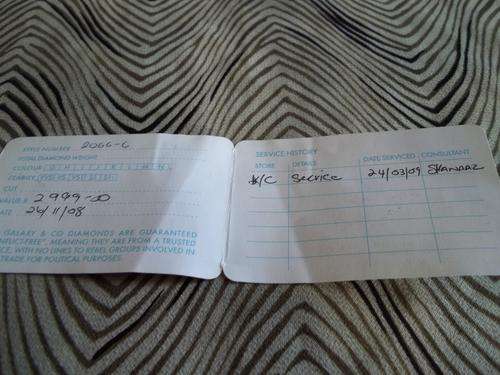 STYLE NUMBER 2066-6
TOTAL DIAMOND WEIGHT
COLOUR
CLARITY
CUT
VALUE R 2999-00
DATE 26/11/08
GALAXY & CO DIAMONDS ARE GUARANTEED
"CONFLICT-FREE", MEANING THEY ARE FROM A TRUSTED
CE, WITH NO LINKS TO REBEL GROUPS INVOLVED IN
TRADE FOR POLITICAL PURPOSES.
SERVICE HISTORY
STORE DETAILS DATE SERVICED CONSULTANT
K/C Service 24/03/09 Shanaaz